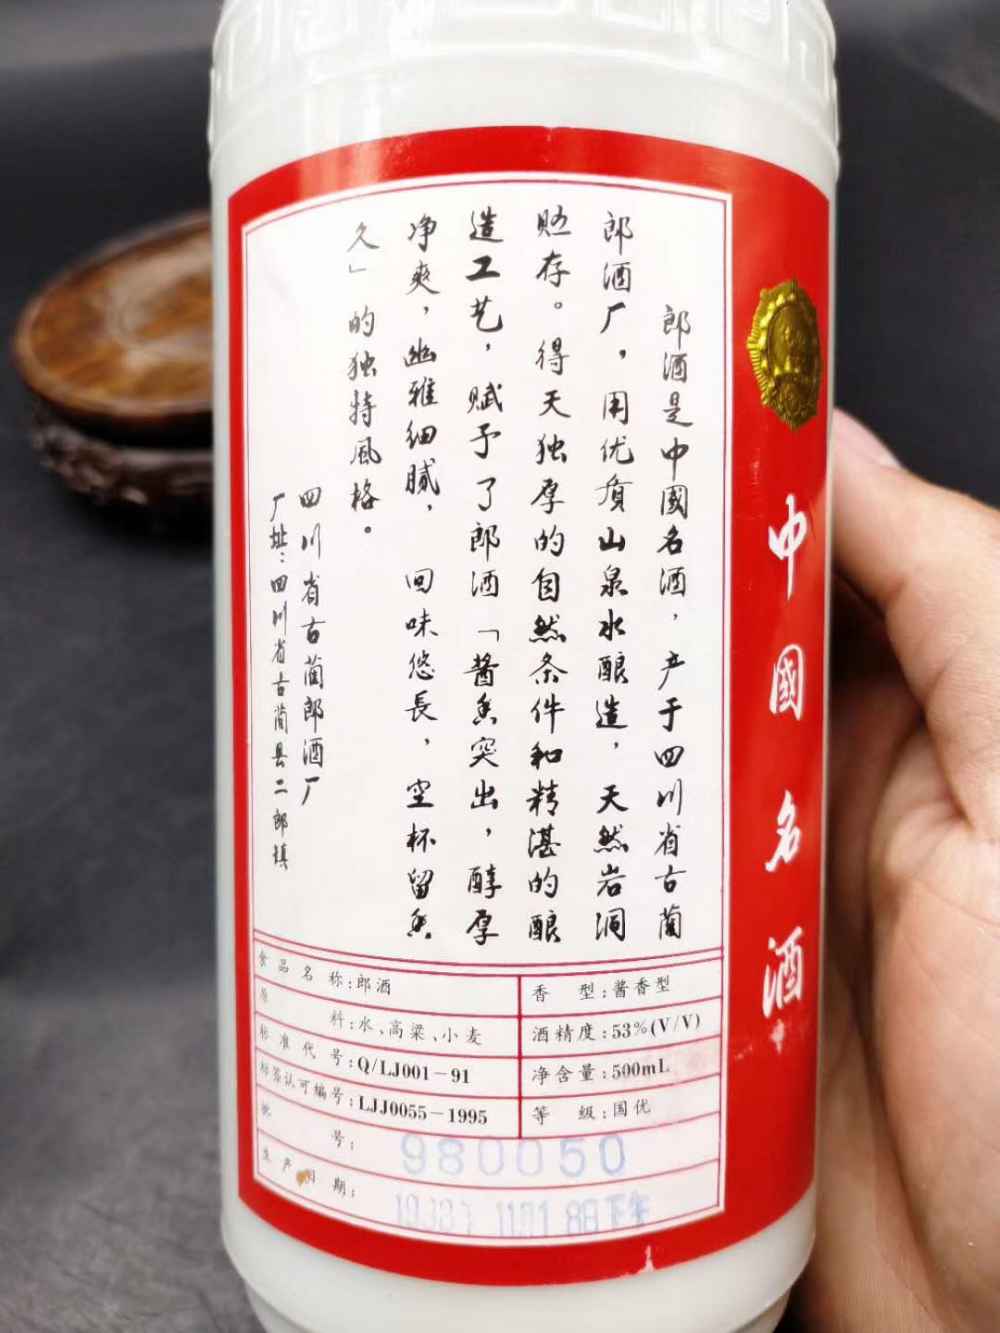 郎酒是中國名酒，产于四川省古蔺
郎酒厂，用优质山泉水酿造，天然岩洞
贮存。得天独厚的自然条件和精湛的酿
造工艺，赋予了郎酒「酱香突出，醇厚
净爽，幽雅细腻，回味悠長，空杯留香
久」的独特風格。
四川省古蔺郎酒厂
厂址：四川省古蔺县二郎镇
中國名酒
食品名称：郎酒
香型：酱香型
原料：水、高粱、小麦
酒精度：53%(V/V)
标准代号：Q/LJ001-91
净含量：500mL
标签认可编号：LJJ0055-1995
等级：国优
批号：980050
生产日期：